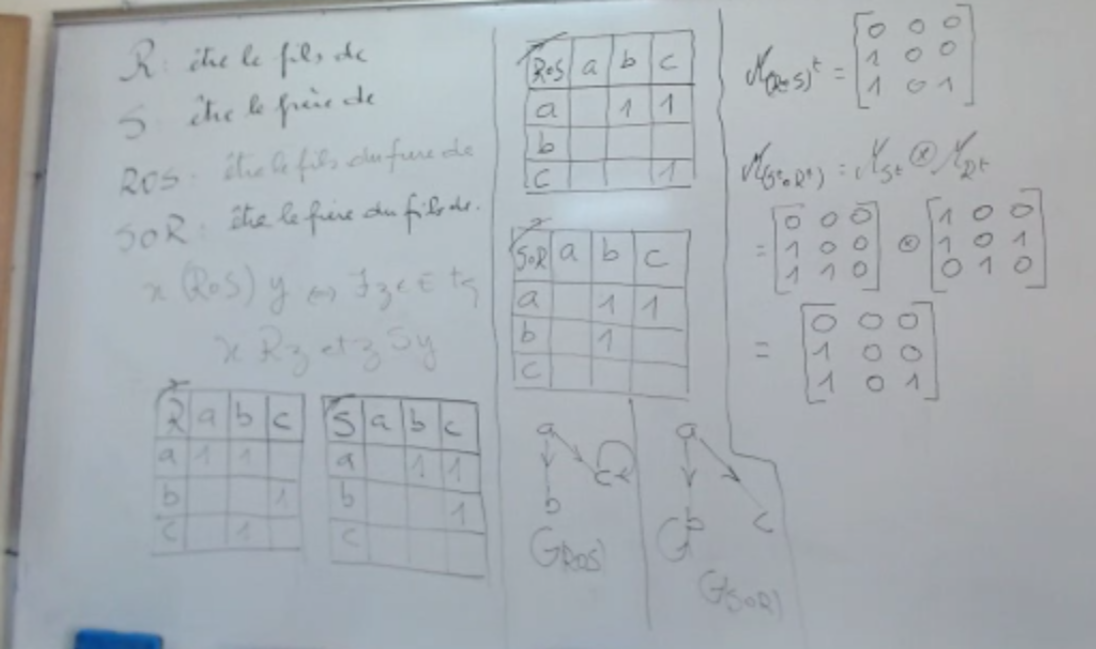 R : être le fils de
S : être le frère de
ROS : être le fils du frère de
SOR : être le frère du fils de.
x (RoS) y ⇔ ∃z ∈ E tq
x R z et z S y
R a b c
a 1 1
b 1
c 1
S a b c
a 1 1
b 1
c
RoS a b c
a 1 1
b
c 1
SoR a b c
a 1 1
b 1
c
a
c
b
G(ROS)
a
b c
G(SOR)
M(RoS)ᵗ = [0 0 0
1 0 0
1 0 1]
M(Sᵗ∘Rᵗ) = M Sᵗ ⊗ M Rᵗ
= [0 0 0
1 0 0
1 1 0] ⊗ [1 0 0
1 0 1
0 1 0]
= [0 0 0
1 0 0
1 0 1]